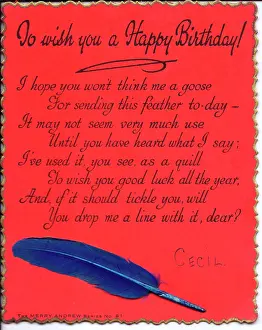 To wish you a Happy Birthday!
I hope you won't think me a goose
For sending this feather to-day—
It may not seem very much use
Until you have heard what I say;
I've used it, you see, as a quill
To wish you good luck all the year,
And, if it should tickle you, will
You drop me a line with it, dear?
CECIL
The MERRY ANDREW Series No. 21